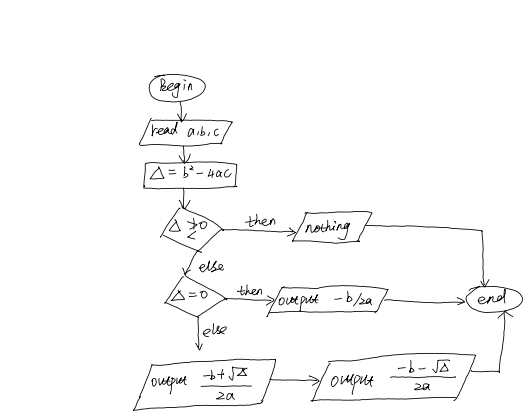 Begin
read a,b,c
Δ = b² - 4ac
then
nothing
else
Δ = 0
then
output -b/2a
end
else
output (-b+√Δ)/2a
output (-b-√Δ)/2a